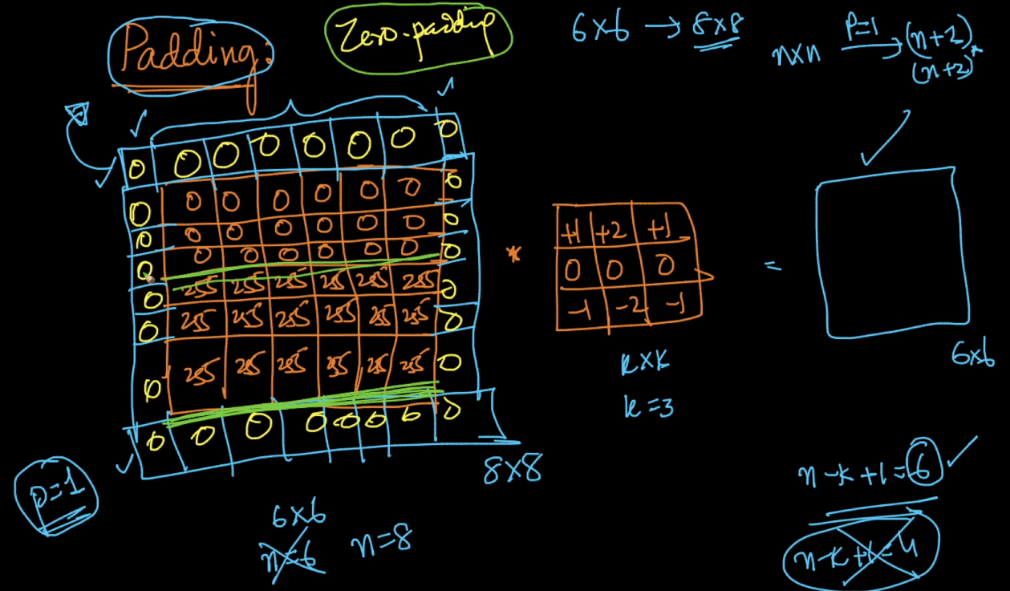 Padding:
Zero-padding
6x6 → 8x8
nxn P=1 → (n+2)*
(n+2)
0 0 0 0 0 0 0 0
0 0 0 0 0 0 0 0
0 0 0 0 0 0 0 0
0 0 0 0 0 0 0 0
0 255 255 255 255 255 255 0
0 255 255 255 255 255 255 0
0 255 255 255 255 255 255 0
0 0 0 0 0 0 0 0
8x8
P=1
6x6
n=6 n=8
*
+1 +2 +1
0 0 0
-1 -2 -1
kxk
k=3
=
6x6
n-k+1=6
n-k+1=4